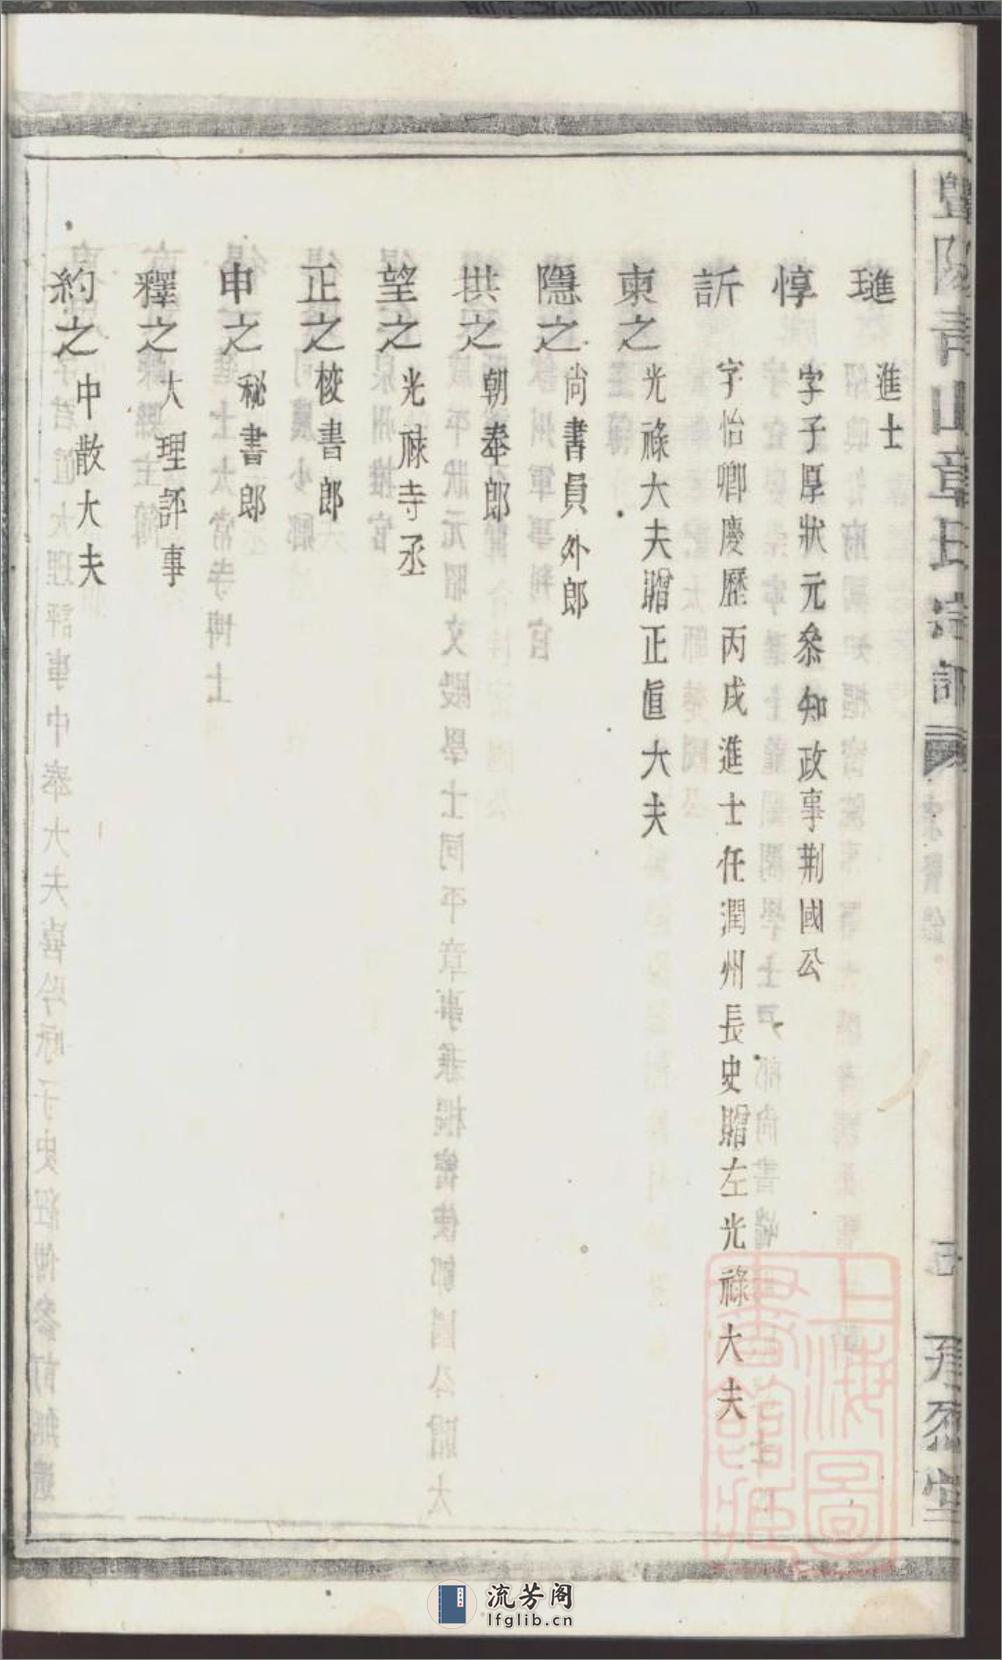 璡 進士
惇 字子厚狀元叅知政事荆國公
訢 字怡卿慶歷丙戌進士任潤州長史贈左光祿大夫
柬之 光祿大夫贈正直大夫
隱之 尚書員外郎
拱之 朝奉郎
望之 光祿寺丞
正之 校書郎
申之 秘書郎
釋之 大理評事
約之 中散大夫
上海圖書館藏
流芳阁
lfglib.cn